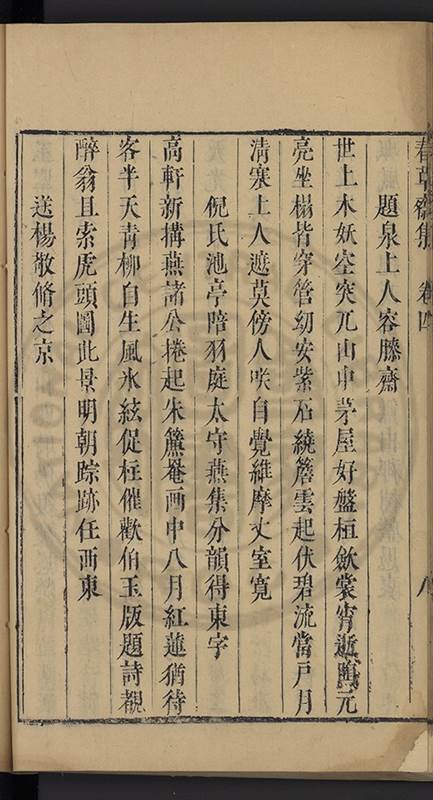 春草齋集 卷四 八
題泉上人容膝齋
世上木妖空突兀山中茅屋好盤桓歛裳宵遯陶元
亮坐榻皆穿管幼安紫石繞簷雲起伏碧流當戶月
清寒上人遮莫傍人咲自覺維摩丈室寬
倪氏池亭陪羽庭太守燕集分韻得東字
高軒新搆燕諸公捲起朱簾罨画中八月紅蓮猶待
客半天青柳自生風氷絃促柱催歡伯玉版題詩覩
醉翁且索虎頭圖此景明朝踪跡任西東
送楊敬脩之京